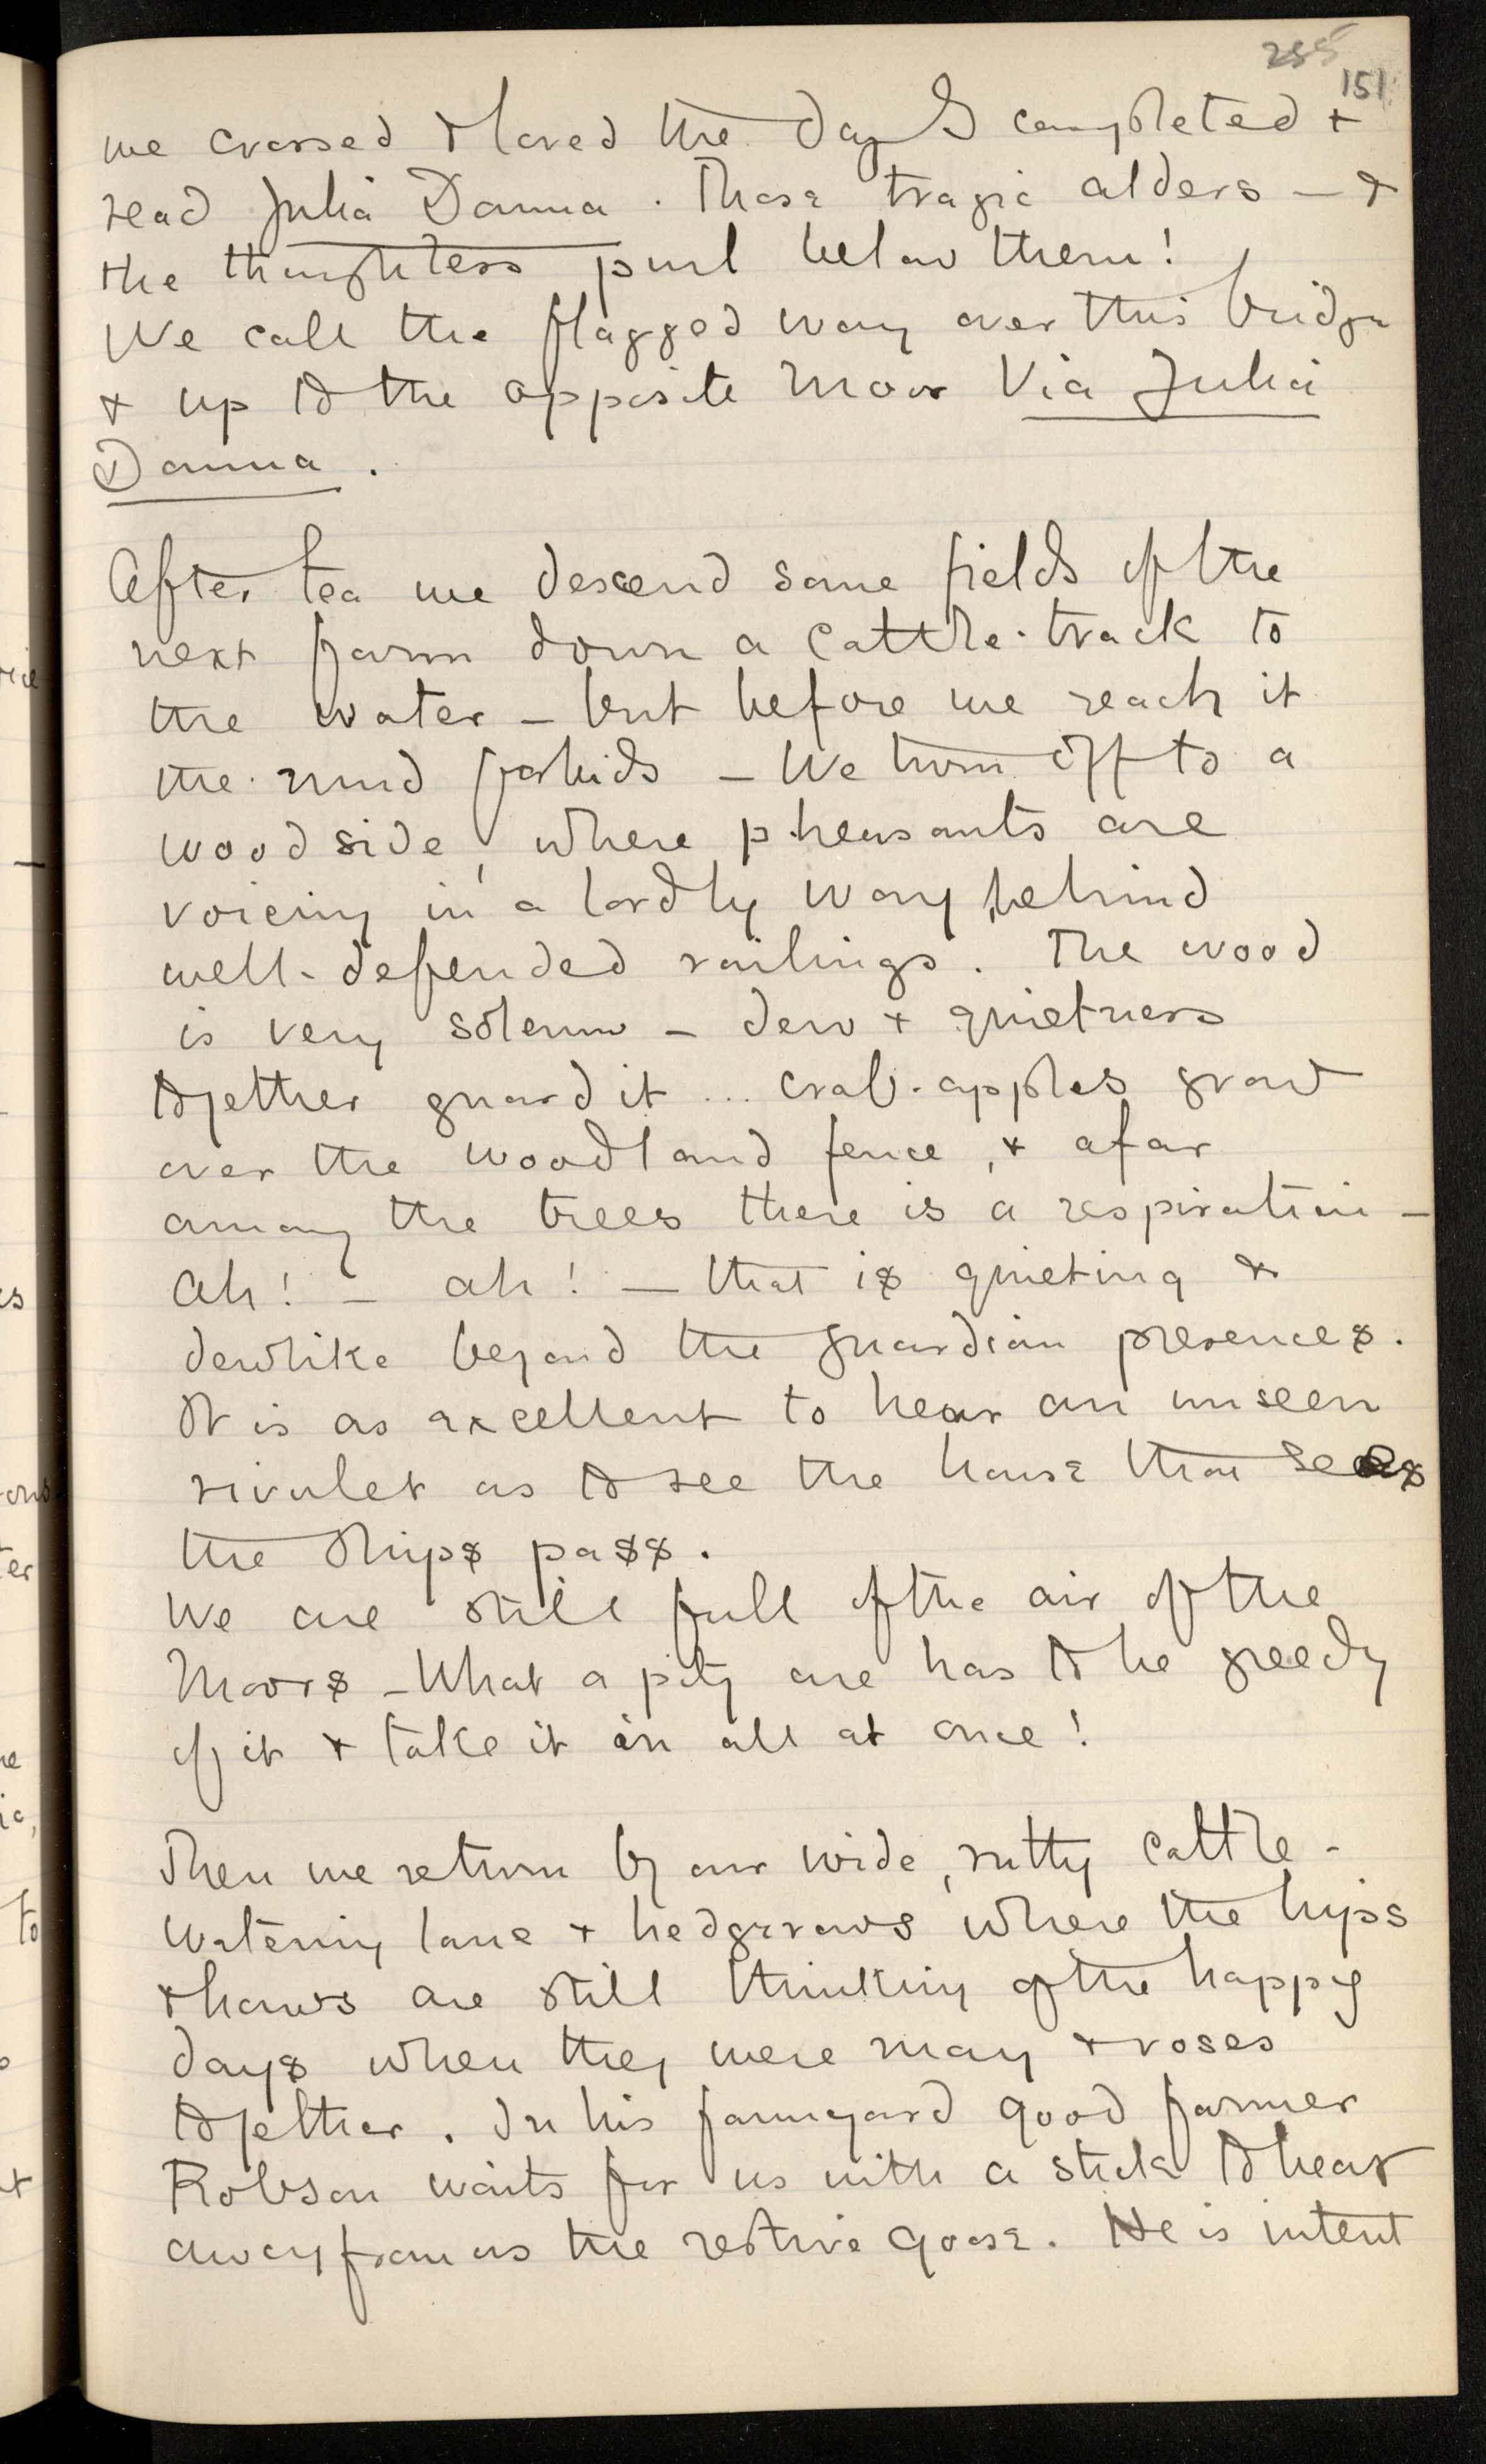 285
151
we crossed & loved the day I completed &
read Julia Domna. Those tragic alders — &
the thoughtless purl below them!
We call the flagged way over this bridge
& up to the opposite moor Via Julia
Domna.
After tea we descend some fields of the
next farm down a cattle-track to
the water — but before we reach it
the mud forbids — We turn off to a
woodside, where pheasants are
voicing in a lordly way behind
well-defended railings. The wood
is very solemn — dew & quietness
together guard it ... crab-apples grow
over the woodland fence, & afar
among the trees there is a respiration —
Ah! — ah! — that is quieting &
dewlike beyond the guardian presences.
It is as excellent to hear an unseen
rivulet as to see the house that sees
the ships pass.
We are still full of the air of the
Moors — What a pity one has to be greedy
of it & take it in all at once!
Then we return by our wide, rutty cattle-
watering lane & hedgerows where the hips
& haws are still thinking of the happy
days when they were may & roses
together. In his farmyard good farmer
Robson waits for us with a stick to hear
away from us the restive goose. He is intent